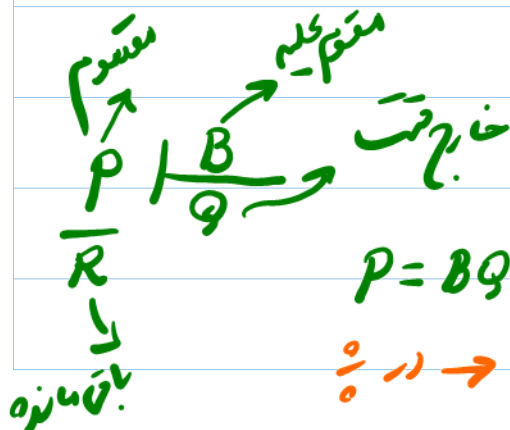 مقسوم
مقسوم علیه
P B
خارج قسمت
Q
R
P = BQ
باقی مانده
→ در ÷